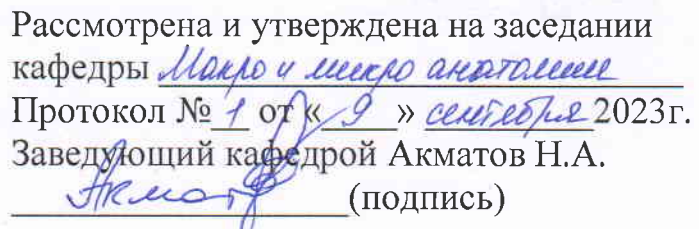 Рассмотрена и утверждена на заседании
кафедры Макро и микро анатомии
Протокол № 1 от « 9 » сентября 2023г.
Заведующий кафедрой Акматов Н.А.
Акмат (подпись)